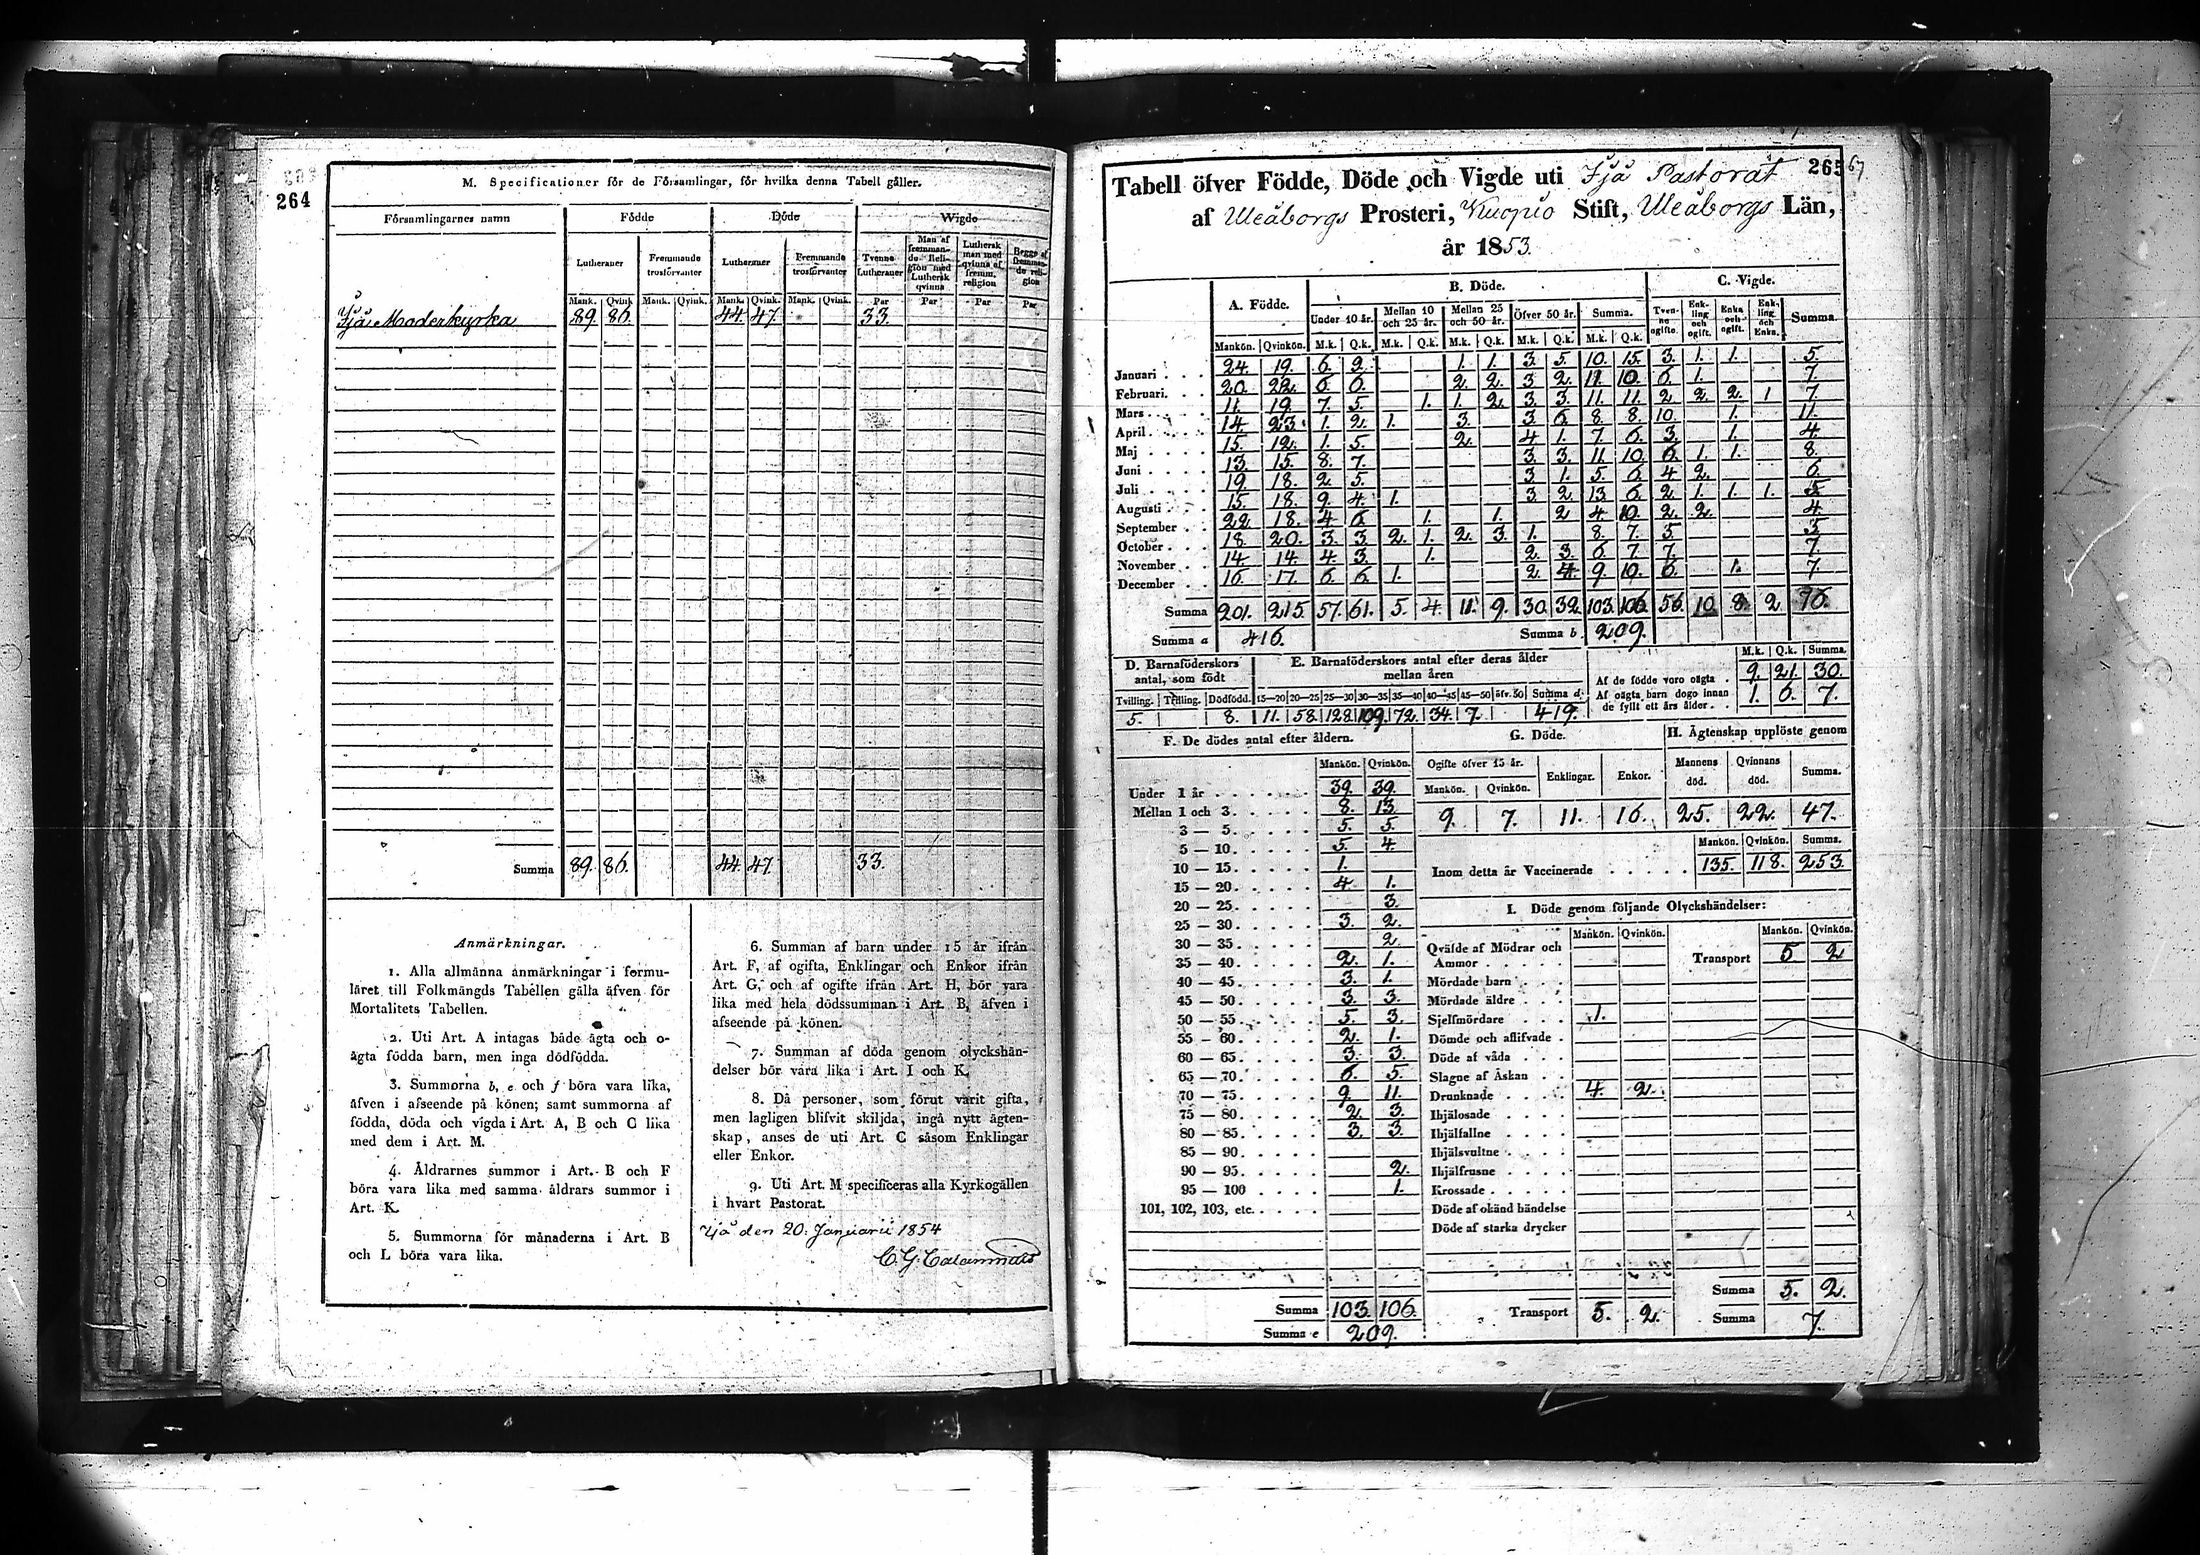 264
M. Specificationer för de Församlingar, för hvilka denna Tabell gäller.
Församlingarnes namn | Födde | Döde | Wigde
Lutheraner | Fremmande trosförvanter | Lutheraner | Fremmande trosförvanter | Tvenne Lutheraner | Man af fremmande Religion med Luthersk qvinna | Luthersk man med qvinna af fremm. religion | Begge af fremmande religion
Mank. | Qvink. | Mank. | Qvink. | Mank. | Qvink. | Mank. | Qvink. | Par | Par | Par | Par
Ijå Moderkyrka 89. 86. 44. 47. 33.
Summa 89. 86. 44. 47. 33.
Anmärkningar.
1. Alla allmänna anmärkningar i formu-
läret till Folkmängds Tabellen gälla äfven för
Mortalitets Tabellen.
2. Uti Art. A intagas både ägta och o-
ägta födda barn, men inga dödfödda.
3. Summorna b, e och f böra vara lika,
äfven i afseende på könen; samt summorna af
födda, döda och vigda i Art. A, B och C lika
med dem i Art. M.
4. Åldrarnes summor i Art. B och F
böra vara lika med samma åldrars summor i
Art. K.
5. Summorna för månaderna i Art. B
och L böra vara lika.
6. Summan af barn under 15 år ifrån
Art. F, af ogifta, Enklingar och Enkor ifrån
Art. G, och af ogifte ifrån Art. H, bör vara
lika med hela dödssumman i Art. B, äfven i
afseende på könen.
7. Summan af döda genom olyckshän-
delser bör vara lika i Art. I och K.
8. Då personer, som förut varit gifta,
men lagligen blifvit skiljda, ingå nytt ägten-
skap, anses de uti Art. C såsom Enklingar
eller Enkor.
9. Uti Art. M specificeras alla Kyrkogällen
i hvart Pastorat.
Ijå den 20. Januarii 1854
C. G. Calamnius
265
67
Tabell öfver Födde, Döde och Vigde uti Ijå Pastorat
af Uleåborgs Prosteri, Kuopio Stift, Uleåborgs Län,
år 1853.
A. Födde. | B. Döde. | C. Vigde.
Under 10 år. | Mellan 10 och 25 år. | Mellan 25 och 50 år. | Öfver 50 år. | Summa. | Tvenne ogifte. | Enkling och ogift. | Enka och ogift. | Enkling och Enka. | Summa.
Mankön. | Qvinkön. | M.k. | Q.k. | M.k. | Q.k. | M.k. | Q.k. | M.k. | Q.k. | M.k. | Q.k.
Januari 24. 19. 6. 9. 1. 1. 3. 5. 10. 15. 3. 1. 1. 5.
Februari 20. 22. 6. 6. 2. 2. 3. 2. 11. 10. 6. 1. 7.
Mars 11. 19. 7. 5. 1. 1. 2. 3. 3. 11. 11. 2. 2. 2. 1 7.
April 14. 23. 1. 2. 1. 3. 3. 6. 8. 8. 10. 1. 11.
Maj 15. 12. 1. 5. 2. 4. 1. 7. 6. 3. 1. 4.
Juni 13. 15. 8. 7. 3. 3. 11. 10. 6. 1. 1. 8.
Juli 19. 18. 2. 5. 3 1. 5. 6. 4 2. 6.
Augusti 15. 18. 9. 4. 1. 3 2. 13. 6. 2. 1. 1. 1. 5
September 22. 18. 4 6. 1. 1. 2 4. 10. 2. 2. 4
October 18. 20. 3. 3. 2. 1. 2. 3. 1. 8. 7. 5. 5
November 14. 14. 4. 3. 1. 2. 3. 6 7. 7. 7.
December 16. 17. 6. 6. 1. 2. 4. 9. 10. 6. 1. 7.
Summa 201. 215. 57. 61. 5. 4. 11. 9. 30. 32. 103. 106. 56. 10. 8. 2. 76.
Summa a 416. Summa b 209.
D. Barnaföderskors antal, som födt | E. Barnaföderskors antal efter deras ålder mellan åren
Tvilling. | Trilling. | Dödfödd. | 15—20 | 20—25 | 25—30 | 30—35 | 35—40 | 40—45 | 45—50 | öfv. 50 | Summa d.
5. 8. 11. 58. 128. 109. 72. 34. 7. 419.
M.k. | Q.k. | Summa.
Af de födde voro oägta 9. 21. 30.
Af oägta barn dogo innan de fyllt ett års ålder 1. 6. 7.
F. De dödes antal efter åldern.
Mankön. | Qvinkön.
Under 1 år 39. 39.
Mellan 1 och 3 8. 13.
3 — 5 5. 5.
5 — 10 5. 4.
10 — 15 1.
15 — 20 4. 1.
20 — 25 3.
25 — 30 3. 2.
30 — 35 2.
35 — 40 2. 1.
40 — 45 3. 1.
45 — 50 3. 3.
50 — 55 5. 3.
55 — 60 2. 1.
60 — 65 3. 3.
65 — 70 6. 5.
70 — 75 9. 11.
75 — 80 2. 3.
80 — 85 3. 3.
85 — 90
90 — 95 2.
95 — 100 1.
101, 102, 103, etc.
Summa 103. 106.
Summa e 209.
G. Döde.
Ogifte öfver 15 år. | Enklingar. | Enkor.
Mankön. | Qvinkön.
9. 7. 11. 16.
H. Ägtenskap upplöste genom
Mannens död. | Qvinnans död. | Summa.
25. 22. 47.
Mankön. | Qvinkön. | Summa.
Inom detta år Vaccinerade 135. 118. 253.
I. Döde genom följande Olyckshändelser:
Mankön. | Qvinkön. | Mankön. | Qvinkön.
Qväfde af Mödrar och Ammor
Mördade barn
Mördade äldre
Sjelfmördare 1.
Dömde och aflifvade
Döde af våda
Slagne af Åskan
Drunknade 4. 2.
Ihjälosade
Ihjälfallne
Ihjälsvultne
Ihjälfrusne
Krossade
Döde af okänd händelse
Döde af starka drycker
Transport 5. 2.
Transport 5 2
Summa 5. 2.
Summa 7.